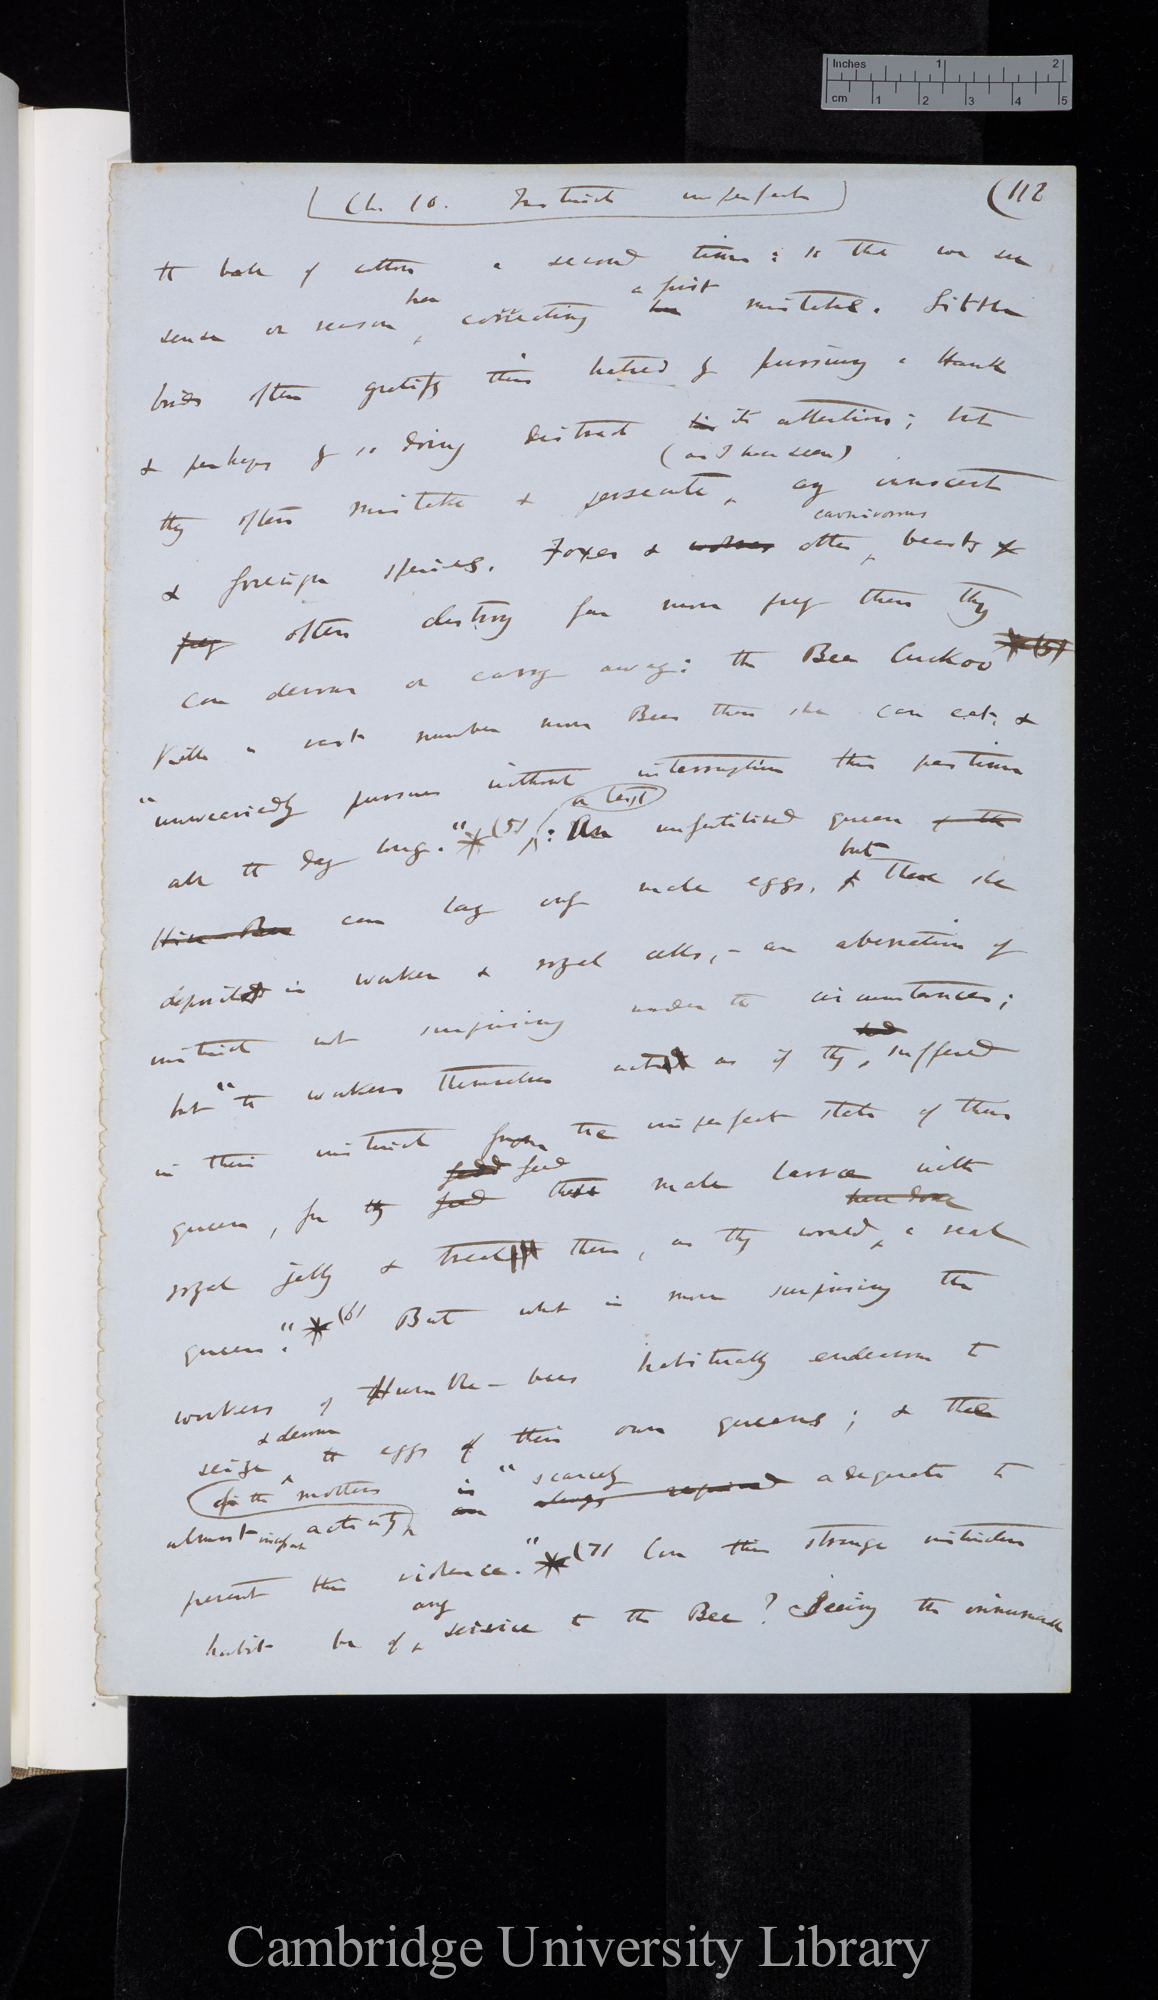 Inches 1 2
cm 1 2 3 4 5
Ch. 10. Instinct imperfect (112
the ball of cotton a second time: so that we see
here a first
sense or reason, correcting her mistake. Little
birds often gratify their hatred by pursuing a Hawk
& perhaps by so doing distract his its attention; but
(as I have seen)
they often mistake & persecute, any innocent
carnivorous
& foreign species. Foxes & wolves other beasts &
prey often destroy far more prey than they
can devour or carry away: the Bee Cuckoo * (5)
kills a vast number more Bees than she can eat, &
"unweariedly pursues without interruption this pastime
at least
all the day long."* (5) : An unfertilised queen of the
but
Hive-Bee can lay only male eggs, & these she
deposits in worker & royal cells, – an aberration of
instinct not surprising under the circumstances;
had
but "the workers themselves act as if they suffered
in their instinct from the imperfect state of their
feed feed
queen, for they feed these male larvæ with
have done
royal jelly & treat them, as they would a real
queen."* (6) But what is more surprising the
workers of Humble-bees habitually endeavour to
& devour
seize the eggs of their own queens; & the
of the mothers is "scarcely
almost incessant activity are always required adequate to
prevent this violence."* (7) Can this strange instinctive
any
habit be of service to the Bee? Seeing the innumerable
Cambridge University Library